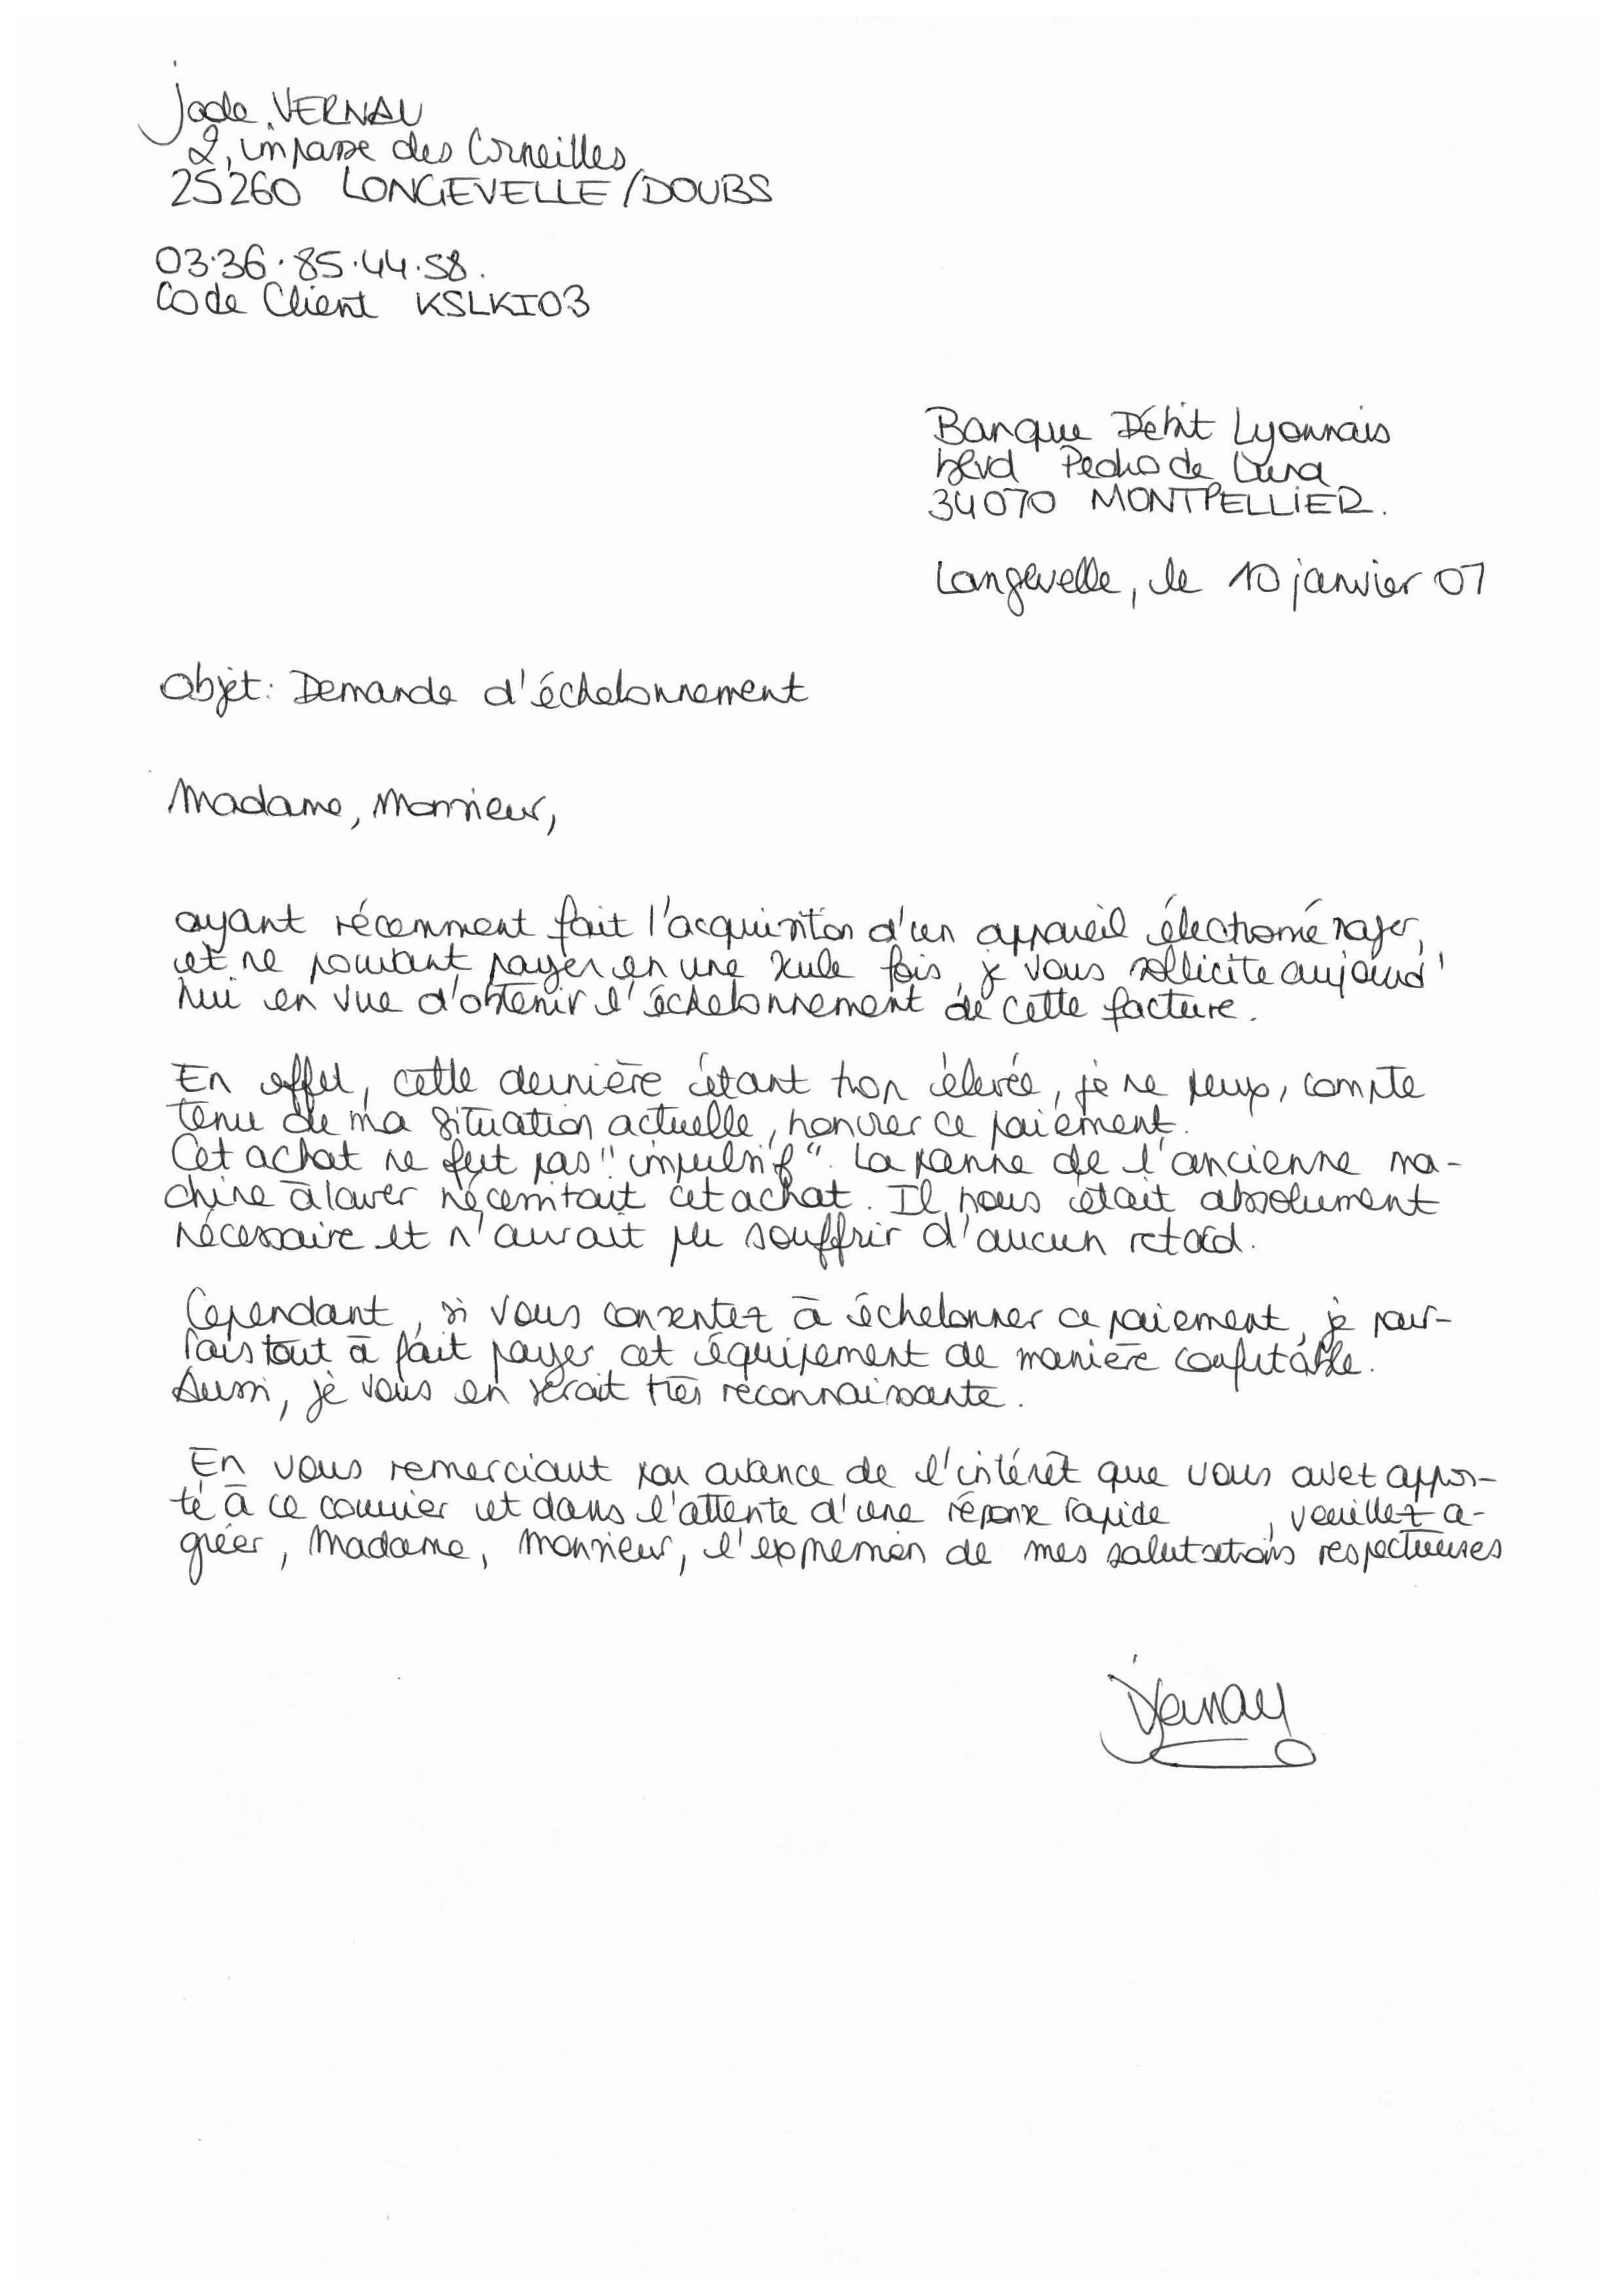 Jade VERNAU
2, impasse des Corneilles
25260 LONGEVELLE/DOUBS
03.36.85.44.58.
Code Client KSLKI03
Banque Débit Lyonnais
blvd Pedro de Luna
34070 MONTPELLIER.
Longevelle, le 10 janvier 07
Objet: Demande d'échelonnement
Madame, Monsieur,
ayant récemment fait l'acquisition d'un appareil électroménager,
et ne pouvant payer en une seule fois, je vous sollicite aujourd'
hui en vue d'obtenir l'échelonnement de cette facture.
En effet, cette dernière étant trop élevée, je ne peux, compte
tenu de ma situation actuelle, honorer ce paiement.
Cet achat ne fut pas "impulsif". La panne de l'ancienne ma-
chine à laver nécessitait cet achat. Il nous était absolument
nécessaire et n'aurait pu souffrir d'aucun retard.
Cependant, si vous consentez à échelonner ce paiement, je pour-
rais tout à fait payer cet équipement de manière confortable.
Aussi, je vous en serait très reconnaissante.
En vous remerciant par avance de l'intérêt que vous avez appor-
té à ce courrier et dans l'attente d'une réponse rapide, veuillez a-
gréer, Madame, Monsieur, l'expression de mes salutations respectueuses
JVernau